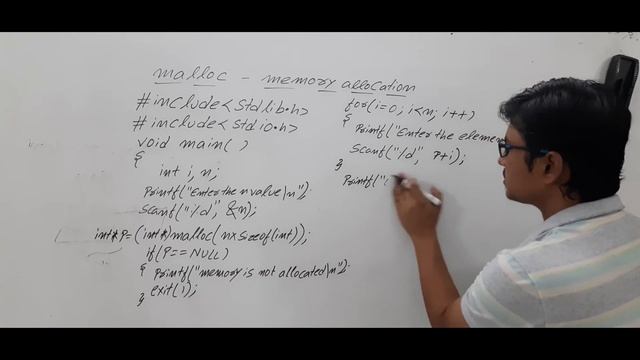 malloc - memory allocation
#include<stdlib.h>
#include<stdio.h>
void main( )
{
int i, n;
Printf("Enter the n value\n");
Scanf("%d", &n);
int*P=(int*)malloc(n×Sizeof(int));
if(P==NULL)
{ Printf("memory is not allocated\n");
exit(1);
}
for(i=0; i<n; i++)
{
Printf("Enter the elemen
Scanf("%d", P+i);
}
Printf("